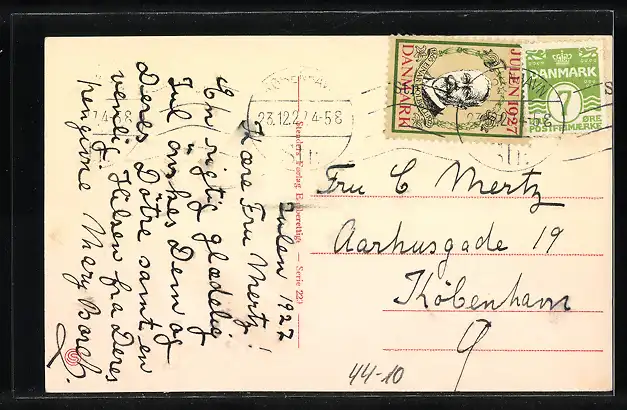 Julen 1927
Kære Fru Mertz!
En rigtig glædelig
Jul ønskes Dem og
Deres Døtre samt en
venlig Hilsen fra Deres
hengivne Mary Borch.
Stenders Forlag. Eneberettiget — Serie 229
KØBENHAVN
23.12.27.4-5 8
JULEN 1927
DANMARK
DANMARK
7
ØRE
POSTFRIMÆRKE
Fru C Mertz
Aarhusgade 19
København
Ø
44-10